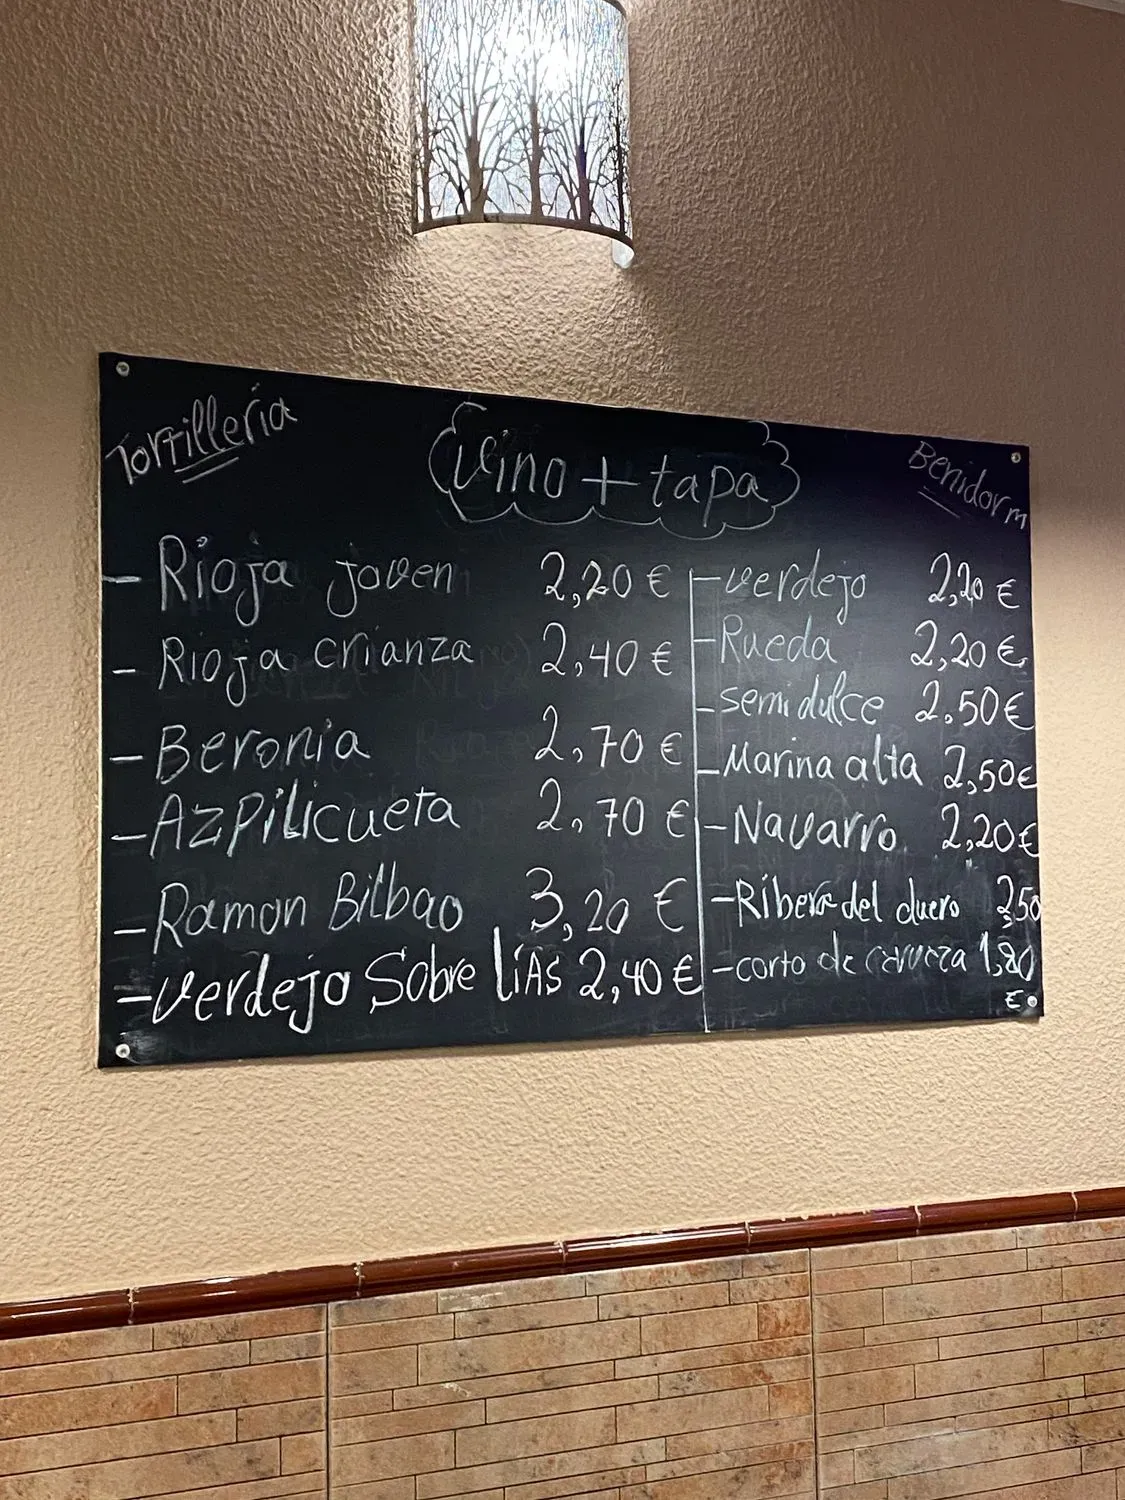 Tortillería
vino + tapa
Benidorm
- Rioja joven 2,20 €
- Rioja crianza 2,40 €
- Beronia 2,70 €
- Azpilicueta 2,70 €
- Ramon Bilbao 3,20 €
- verdejo Sobre lías 2,40 €
- verdejo 2,20 €
- Rueda 2,20 €
- semidulce 2,50 €
- Marina alta 2,50 €
- Navarro 2,20 €
- Ribera del duero 2,50
- corto de cerveza 1,80
€